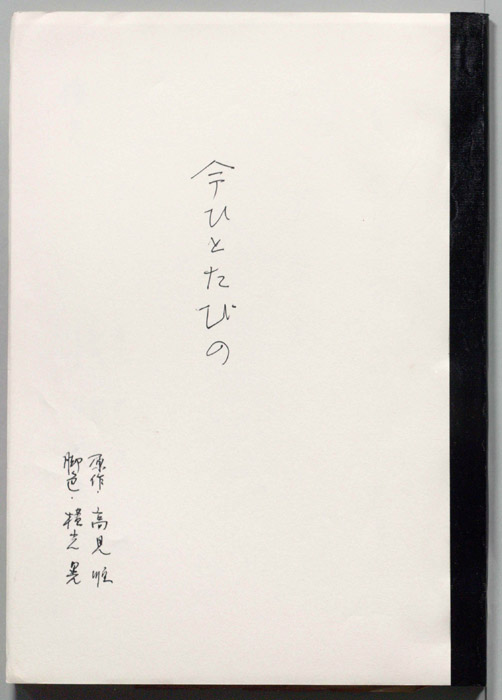 今ひとたびの
原作・高見順
脚色・横光晃